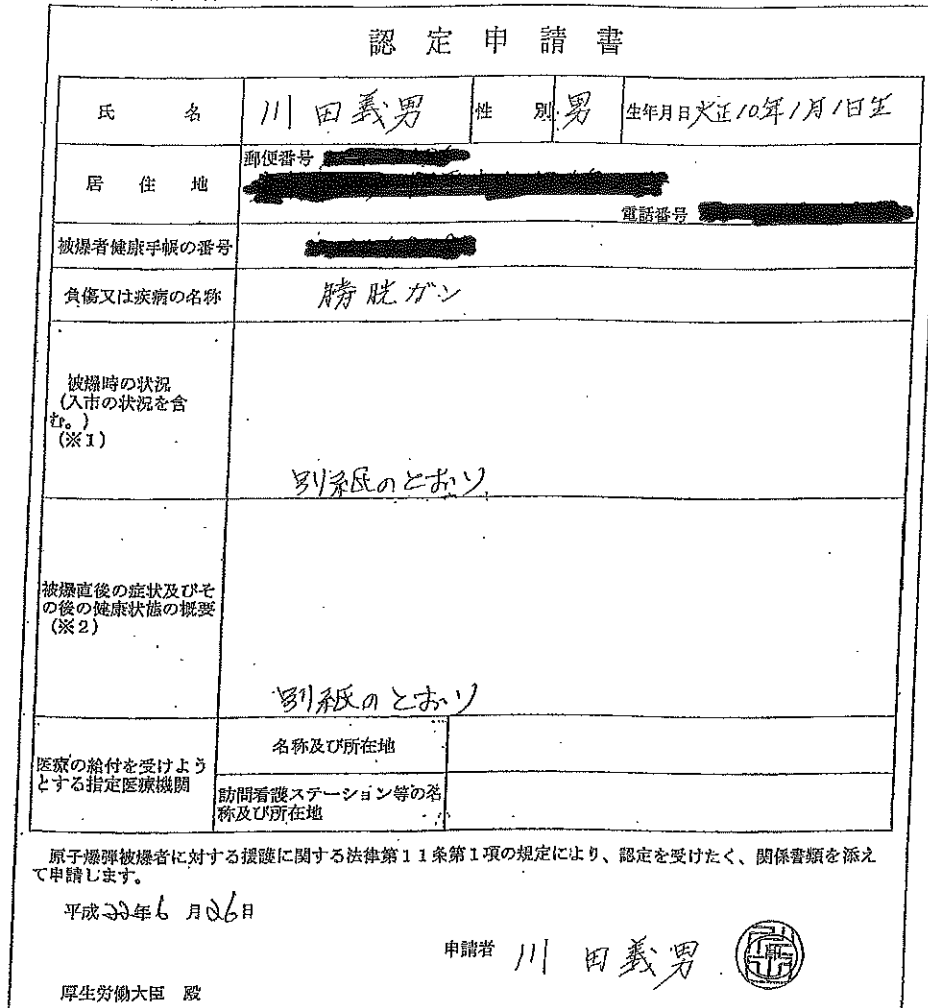 認定申請書
氏名 川田義男 性別 男 生年月日 大正10年1月1日生
郵便番号
居住地
電話番号
被爆者健康手帳の番号
負傷又は疾病の名称 膀胱ガン
被爆時の状況
(入市の状況を含
む。)
(※1)
別紙のとおり
被爆直後の症状及びそ
の後の健康状態の概要
(※2)
別紙のとおり
医療の給付を受けよう
とする指定医療機関
名称及び所在地
訪問看護ステーション等の名
称及び所在地
原子爆弾被爆者に対する援護に関する法律第11条第1項の規定により、認定を受けたく、関係書類を添え
て申請します。
平成22年6月26日
申請者 川田義男
厚生労働大臣 殿